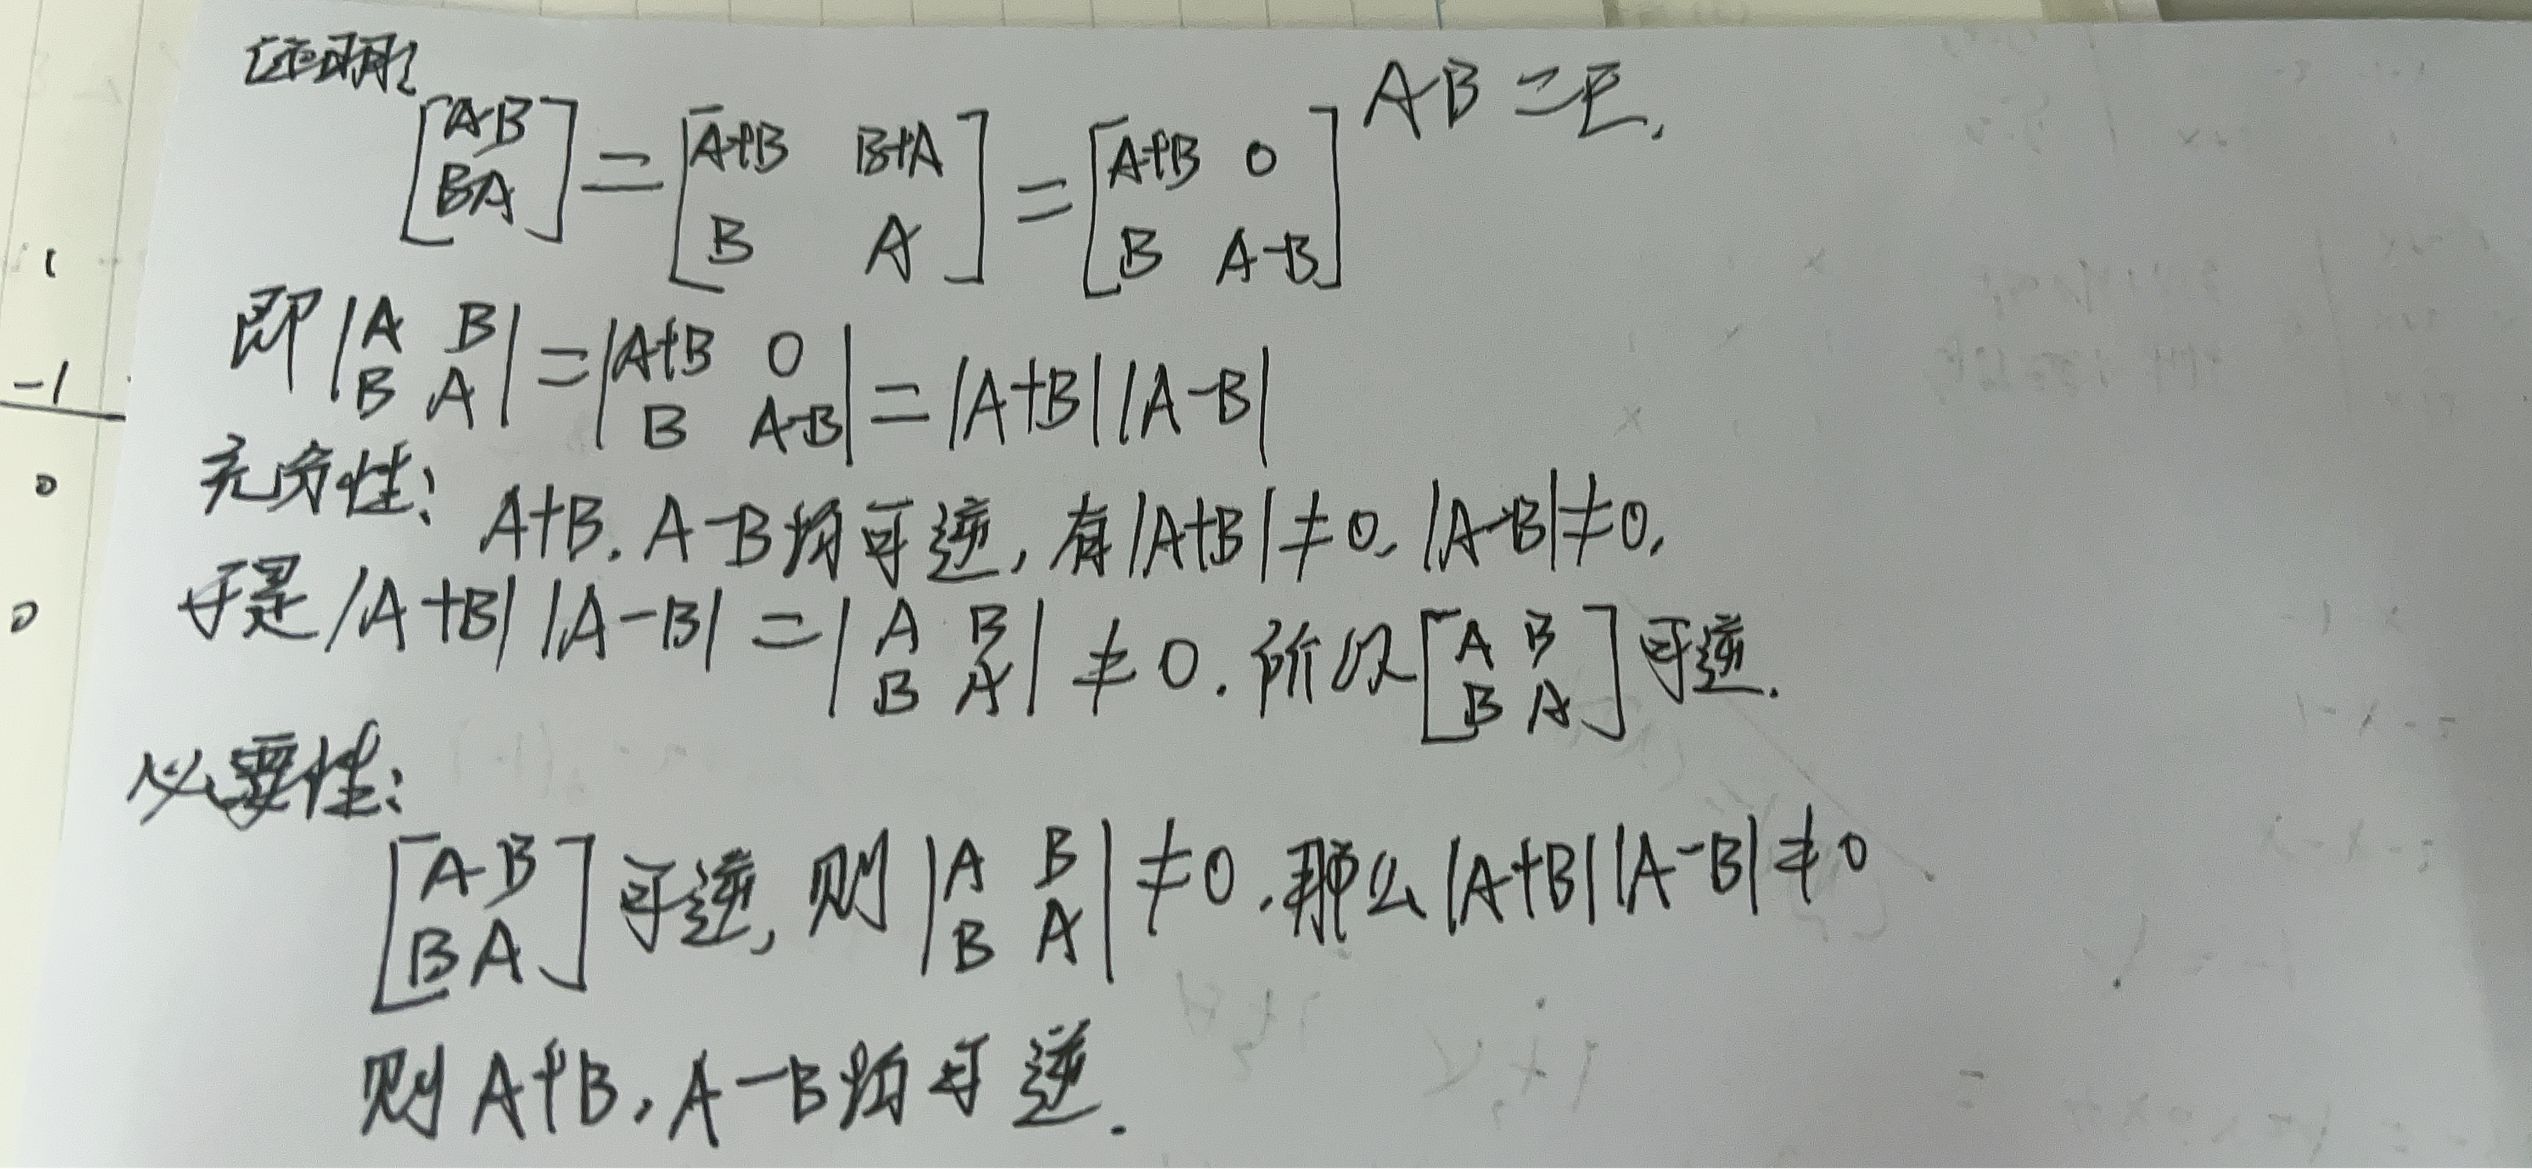 证明:
[A B
B A] = [A+B B+A
B A] = [A+B 0
B A-B] AB=E.
即 |A B
B A| = |A+B 0
B A-B| = |A+B| |A-B|
充分性:
A+B, A-B均可逆, 有|A+B|≠0, |A-B|≠0,
于是 |A+B| |A-B| = |A B
B A| ≠ 0. 所以 [A B
B A] 可逆.
必要性:
[A B
B A] 可逆, 则 |A B
B A| ≠0. 那么 |A+B| |A-B| ≠0
则 A+B, A-B均可逆.
1
-1
0
0